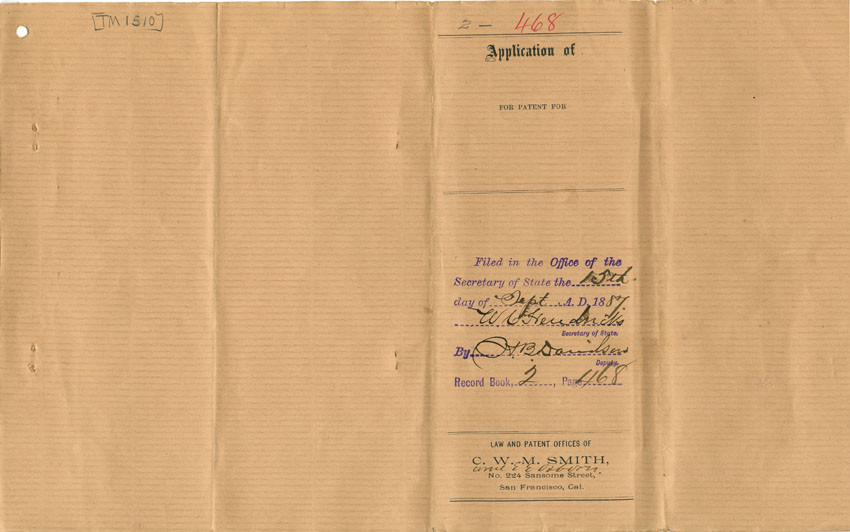 [TM 1510]
2 - 468
Application of
FOR PATENT FOR
Filed in the Office of the
Secretary of State the 15th
day of Sept A. D. 1887
W C Hendricks
Secretary of State.
By H B Davidson
Deputy.
Record Book, 2, Page 468
LAW AND PATENT OFFICES OF
C. W. M. SMITH,
and E E Osborn.
No. 224 Sansome Street,
San Francisco, Cal.